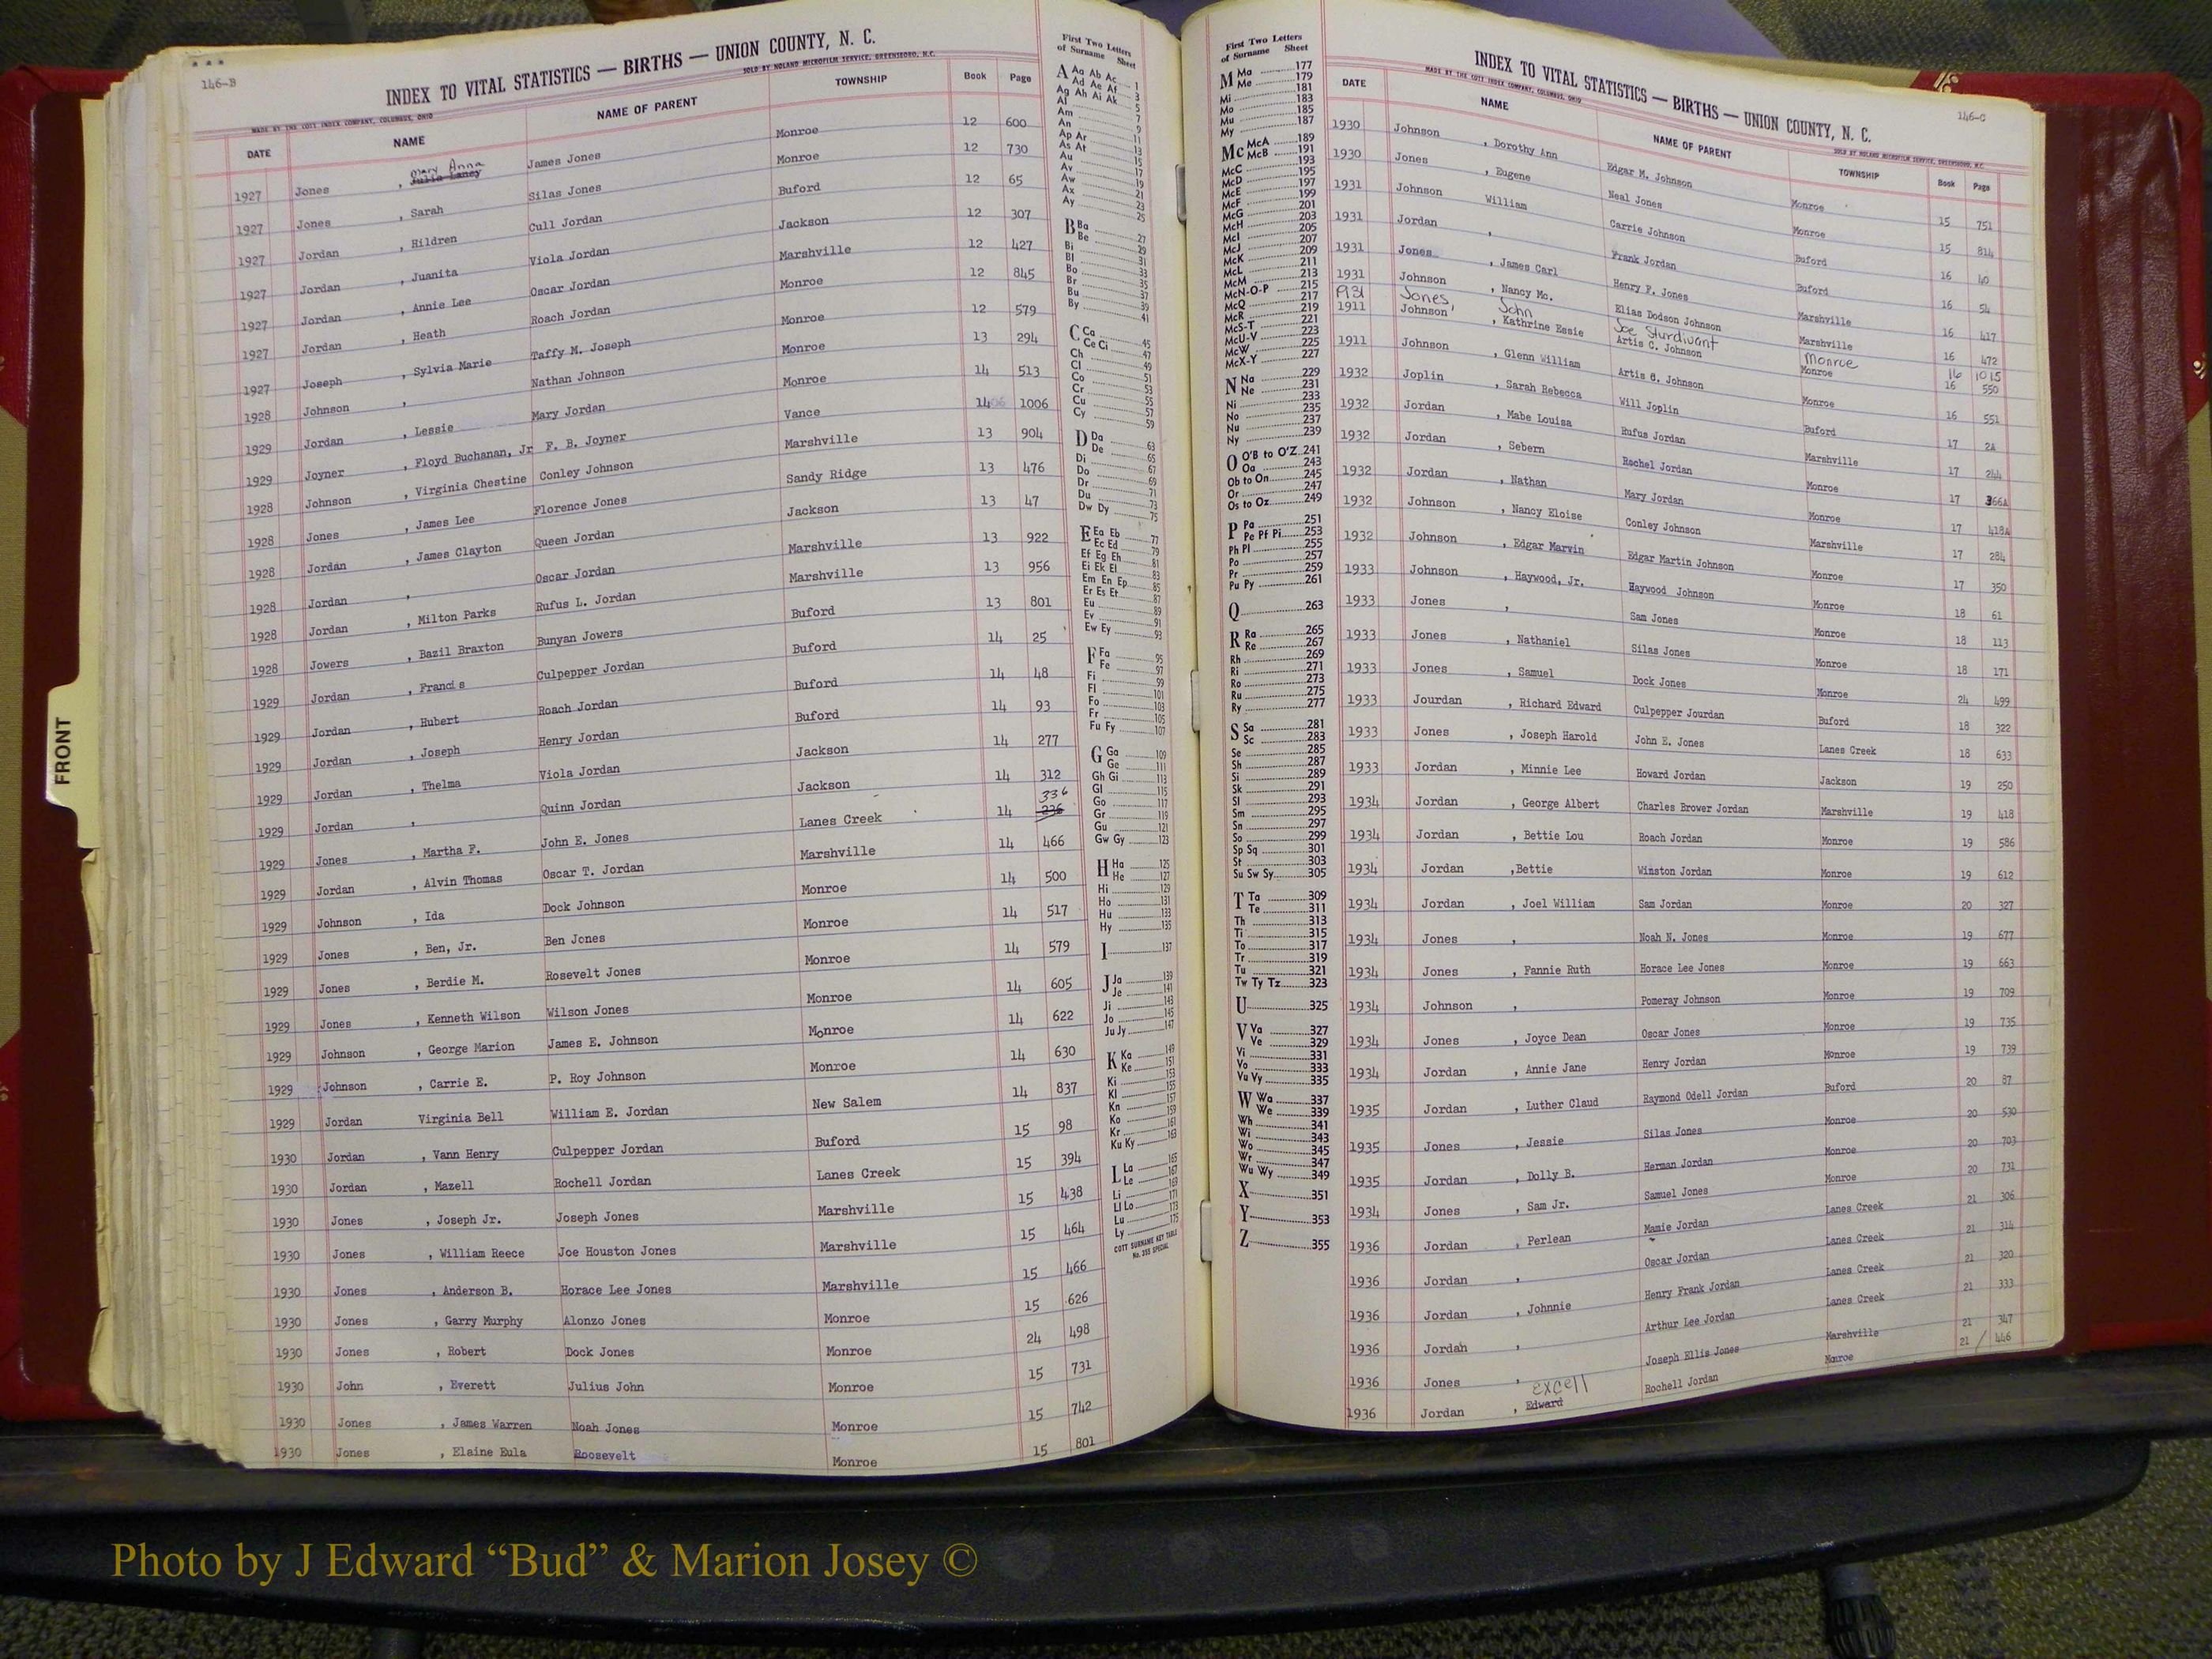 146-B
INDEX TO VITAL STATISTICS — BIRTHS — UNION COUNTY, N. C.
MADE BY THE COTT INDEX COMPANY, COLUMBUS, OHIO SOLD BY NOLAND MICROFILM SERVICE, GREENSBORO, N.C.
DATE NAME NAME OF PARENT TOWNSHIP Book Page
Mary Anna
1927 Jones , Julia Laney James Jones Monroe 12 600
1927 Jones , Sarah Silas Jones Monroe 12 730
1927 Jordan , Hildren Cull Jordan Buford 12 65
1927 Jordan , Juanita Viola Jordan Jackson 12 307
1927 Jordan , Annie Lee Oscar Jordan Marshville 12 427
1927 Jordan , Heath Roach Jordan Monroe 12 845
1927 Joseph , Sylvia Marie Taffy M. Joseph Monroe 12 579
1928 Johnson , Nathan Johnson Monroe 13 294
1929 Jordan , Lessie Mary Jordan Monroe 14 513
1929 Joyner , Floyd Buchanan, Jr F. B. Joyner Vance 14 1006
1928 Johnson , Virginia Chestine Conley Johnson Marshville 13 904
1928 Jones , James Lee Florence Jones Sandy Ridge 13 476
1928 Jordan , James Clayton Queen Jordan Jackson 13 47
1928 Jordan , Oscar Jordan Marshville 13 922
1928 Jordan , Milton Parks Rufus L. Jordan Marshville 13 956
1928 Jowers , Bazil Braxton Bunyan Jowers Buford 13 801
1929 Jordan , Francis Culpepper Jordan Buford 14 25
1929 Jordan , Hubert Roach Jordan Buford 14 48
1929 Jordan , Joseph Henry Jordan Buford 14 93
1929 Jordan , Thelma Viola Jordan Jackson 14 277
1929 Jordan , Quinn Jordan Jackson 14 312
336
1929 Jones , Martha F. John E. Jones Lanes Creek 14 226
1929 Jordan , Alvin Thomas Oscar T. Jordan Marshville 14 466
1929 Johnson , Ida Dock Johnson Monroe 14 500
1929 Jones , Ben, Jr. Ben Jones Monroe 14 517
1929 Jones , Berdie M. Rosevelt Jones Monroe 14 579
1929 Jones , Kenneth Wilson Wilson Jones Monroe 14 605
1929 Johnson , George Marion James E. Johnson Monroe 14 622
1929 Johnson , Carrie E. P. Roy Johnson Monroe 14 630
1929 Jordan Virginia Bell William E. Jordan New Salem 14 837
1930 Jordan , Vann Henry Culpepper Jordan Buford 15 98
1930 Jordan , Mazell Rochell Jordan Lanes Creek 15 394
1930 Jones , Joseph Jr. Joseph Jones Marshville 15 438
1930 Jones , William Reece Joe Houston Jones Marshville 15 464
1930 Jones , Anderson B. Horace Lee Jones Marshville 15 466
1930 Jones , Garry Murphy Alonzo Jones Monroe 15 626
1930 Jones , Robert Dock Jones Monroe 24 498
1930 John , Everett Julius John Monroe 15 731
1930 Jones , James Warren Noah Jones Monroe 15 742
1930 Jones , Elaine Eula Roosevelt Monroe 15 801
First Two Letters
of Surname Sheet
A Aa Ab Ac 1
Ad Ae Af 3
Ag Ah Ai Ak 5
Al 7
Am 9
An 11
Ap Ar 13
As At 15
Au 17
Av 19
Aw 21
Ax 23
Ay 25
B Ba 27
Be 29
Bi 31
Bl 33
Bo 35
Br 37
Bu 39
By 41
C Ca 45
Ce Ci 47
Ch 49
Cl 51
Co 53
Cr 55
Cu 57
Cy 59
D Da 63
De 65
Di 67
Do 69
Dr 71
Du 73
Dw Dy 75
E Ea Eb 77
Ec Ed 79
Ef Eg Eh 81
Ei Ek El 83
Em En Ep 85
Er Es Et 87
Eu 89
Ev 91
Ew Ey 93
F Fa 95
Fe 97
Fi 99
Fl 101
Fo 103
Fr 105
Fu Fy 107
G Ga 109
Ge 111
Gh Gi 113
Gl 115
Go 117
Gr 119
Gu 121
Gw Gy 123
H Ha 125
He 127
Hi 129
Ho 131
Hu 133
Hy 135
I 137
J Ja 139
Je 141
Ji 143
Jo 145
Ju Jy 147
K Ka 149
Ke 151
Ki 153
Kl 155
Kn 157
Ko 159
Kr 161
Ku Ky 163
L La 165
Le 167
Li 169
Ll Lo 171
Lu 173
Ly 175
COTT SURNAME KEY TABLE
No. 355 SPECIAL
First Two Letters
of Surname Sheet
M Ma 177
Me 179
Mi 181
Mo 183
Mu 185
My 187
Mc McA 189
McB 191
McC 193
McD 195
McE 197
McF 199
McG 201
McH 203
McI 205
McJ 207
McK 209
McL 211
McM 213
McN-O-P 215
McQ 217
McR 219
McS-T 221
McU-V 223
McW 225
McX-Y 227
N Na 229
Ne 231
Ni 233
No 235
Nu 237
Ny 239
O O'B to O'Z 241
Oa 243
Ob to On 245
Or 247
Os to Oz 249
P Pa 251
Pe Pf Pi 253
Ph Pl 255
Po 257
Pr 259
Pu Py 261
Q 263
R Ra 265
Re 267
Rh 269
Ri 271
Ro 273
Ru 275
Ry 277
S Sa 281
Sc 283
Se 285
Sh 287
Si 289
Sk 291
Sl 293
Sm 295
Sn 297
So 299
Sp Sq 301
St 303
Su Sw Sy 305
T Ta 309
Te 311
Th 313
Ti 315
To 317
Tr 319
Tu 321
Tw Ty Tz 323
U 325
V Va 327
Ve 329
Vi 331
Vo 333
Vu Vy 335
W Wa 337
We 339
Wh 341
Wi 343
Wo 345
Wr 347
Wu Wy 349
X 351
Y 353
Z 355
146-C
INDEX TO VITAL STATISTICS — BIRTHS — UNION COUNTY, N. C.
MADE BY THE COTT INDEX COMPANY, COLUMBUS, OHIO SOLD BY NOLAND MICROFILM SERVICE, GREENSBORO, N.C.
DATE NAME NAME OF PARENT TOWNSHIP Book Page
1930 Johnson , Dorothy Ann Edgar M. Johnson Monroe 15 751
1930 Jones , Eugene Neal Jones Monroe 15 814
1931 Johnson William Carrie Johnson Buford 16 40
1931 Jordan , Frank Jordan Buford 16 54
1931 Jones , James Carl Henry F. Jones Marshville 16 417
1931 Johnson , Nancy Mc. Elias Dodson Johnson Marshville 16 472
1931 Jones, John Joe Sturdivant Monroe 16 1015
1911 Johnson , Kathrine Essie Artis C. Johnson Monroe 16 550
1911 Johnson , Glenn William Artis C. Johnson Monroe 16 551
1932 Joplin , Sarah Rebecca Will Joplin Buford 17 2A
1932 Jordan , Mabe Louisa Rufus Jordan Marshville 17 244
1932 Jordan , Sebern Rachel Jordan Monroe 17 366A
1932 Jordan , Nathan Mary Jordan Monroe 17 418A
1932 Johnson , Nancy Eloise Conley Johnson Marshville 17 284
1932 Johnson , Edgar Marvin Edgar Martin Johnson Monroe 17 350
1933 Johnson , Haywood, Jr. Haywood Johnson Monroe 18 61
1933 Jones , Sam Jones Monroe 18 113
1933 Jones , Nathaniel Silas Jones Monroe 18 171
1933 Jones , Samuel Dock Jones Monroe 24 499
1933 Jourdan , Richard Edward Culpepper Jourdan Buford 18 322
1933 Jones , Joseph Harold John E. Jones Lanes Creek 18 633
1933 Jordan , Minnie Lee Howard Jordan Jackson 19 250
1934 Jordan , George Albert Charles Brower Jordan Marshville 19 418
1934 Jordan , Bettie Lou Roach Jordan Monroe 19 586
1934 Jordan ,Bettie Winston Jordan Monroe 19 612
1934 Jordan , Joel William Sam Jordan Monroe 20 327
1934 Jones , Noah N. Jones Monroe 19 677
1934 Jones , Fannie Ruth Horace Lee Jones Monroe 19 663
1934 Johnson , Pomeray Johnson Monroe 19 709
1934 Jones , Joyce Dean Oscar Jones Monroe 19 735
1934 Jordan , Annie Jane Henry Jordan Monroe 19 739
1935 Jordan , Luther Claud Raymond Odell Jordan Buford 20 87
1935 Jones , Jessie Silas Jones Monroe 20 530
1935 Jordan , Dolly B. Herman Jordan Monroe 20 703
1934 Jones , Sam Jr. Samuel Jones Monroe 20 731
1936 Jordan , Perlean Mamie Jordan Lanes Creek 21 306
1936 Jordan , Oscar Jordan Lanes Creek 21 314
1936 Jordan , Johnnie Henry Frank Jordan Lanes Creek 21 320
1936 Jordan , Arthur Lee Jordan Lanes Creek 21 333
1936 Jones , Joseph Ellis Jones Marshville 21 347
Excell
1936 Jordan , Edward Rochell Jordan Monroe 21 / 446
FRONT
Photo by J Edward “Bud” & Marion Josey ©